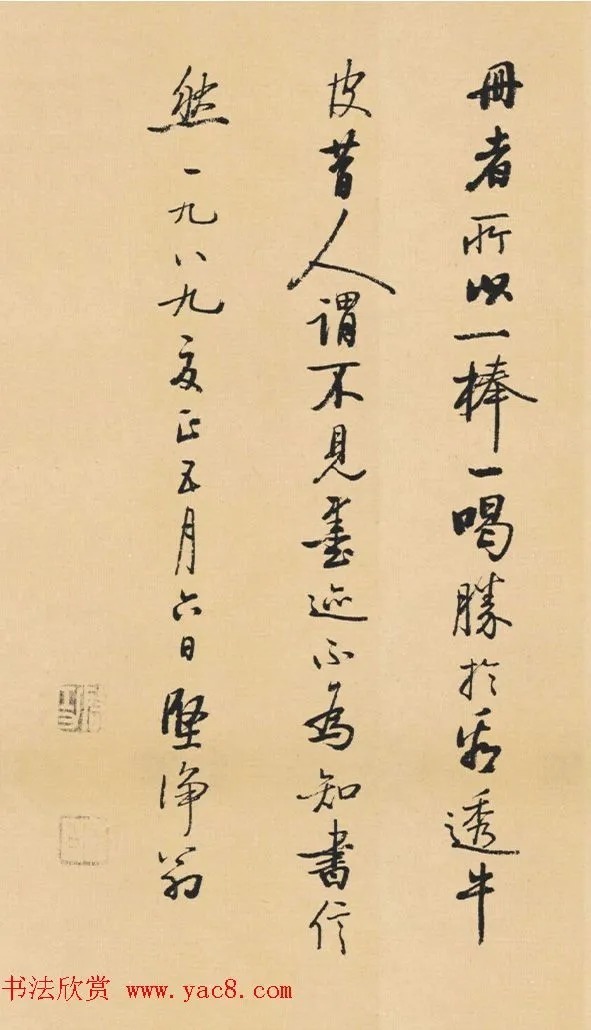 冊者所以一棒一喝勝於看透牛
皮昔人謂不見墨迹不為知書信
然一九八九夏正五月六日堅淨翁
书法欣赏 www.yac8.com